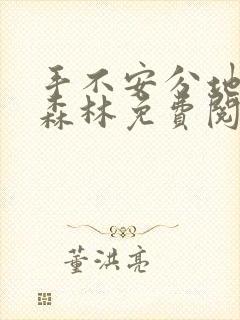 手不安分地
森林免费阅
董洪亮